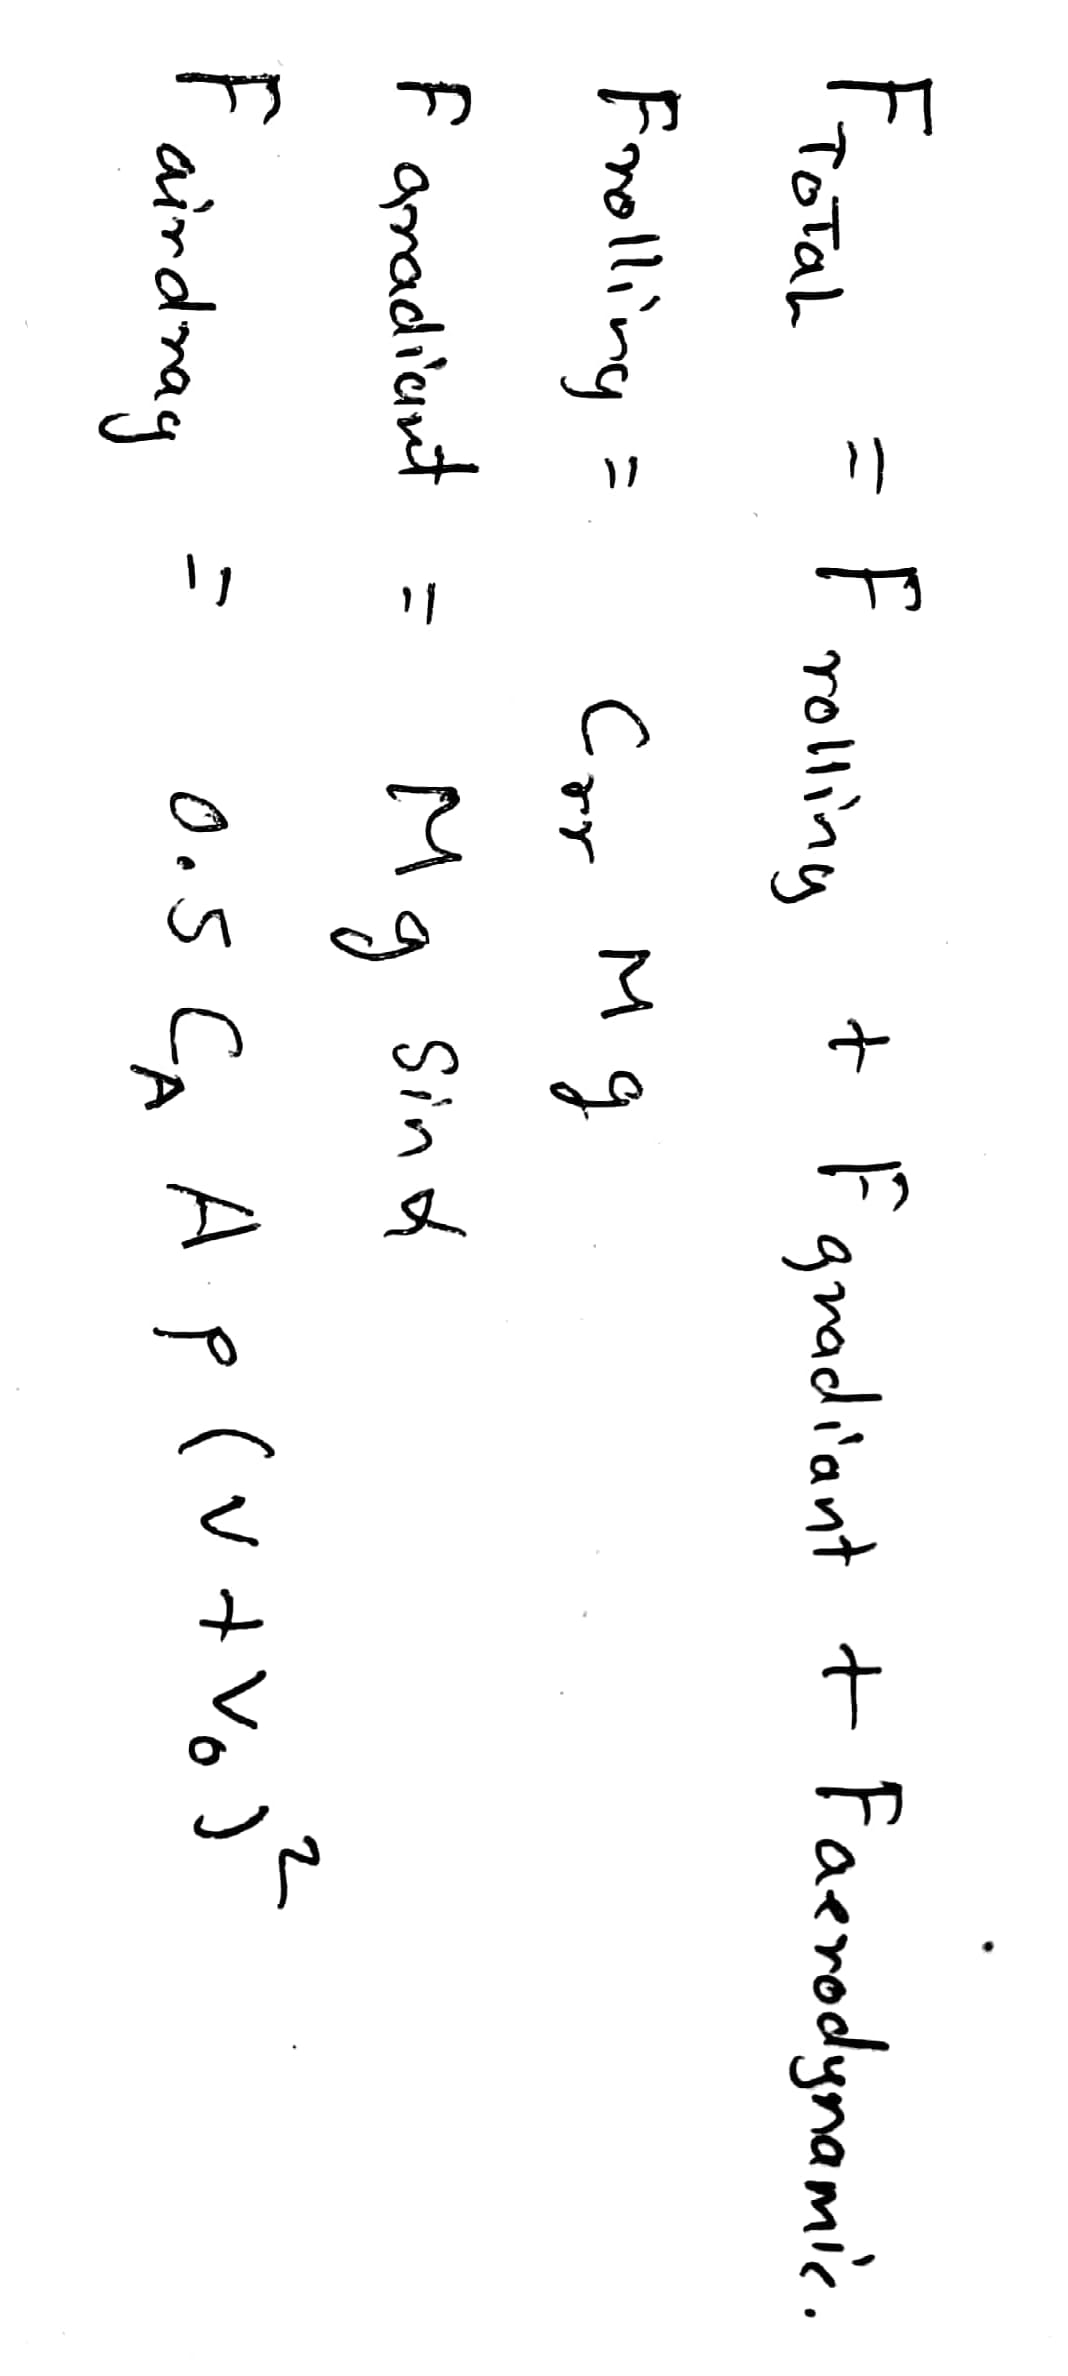 F TOTAL = F rolling + F gradiant + F aerodynamic.
F rolling = Crr M g
F gradiant = M g Sin α
F airdrag = 0.5 C_A A P (V + V₀)²